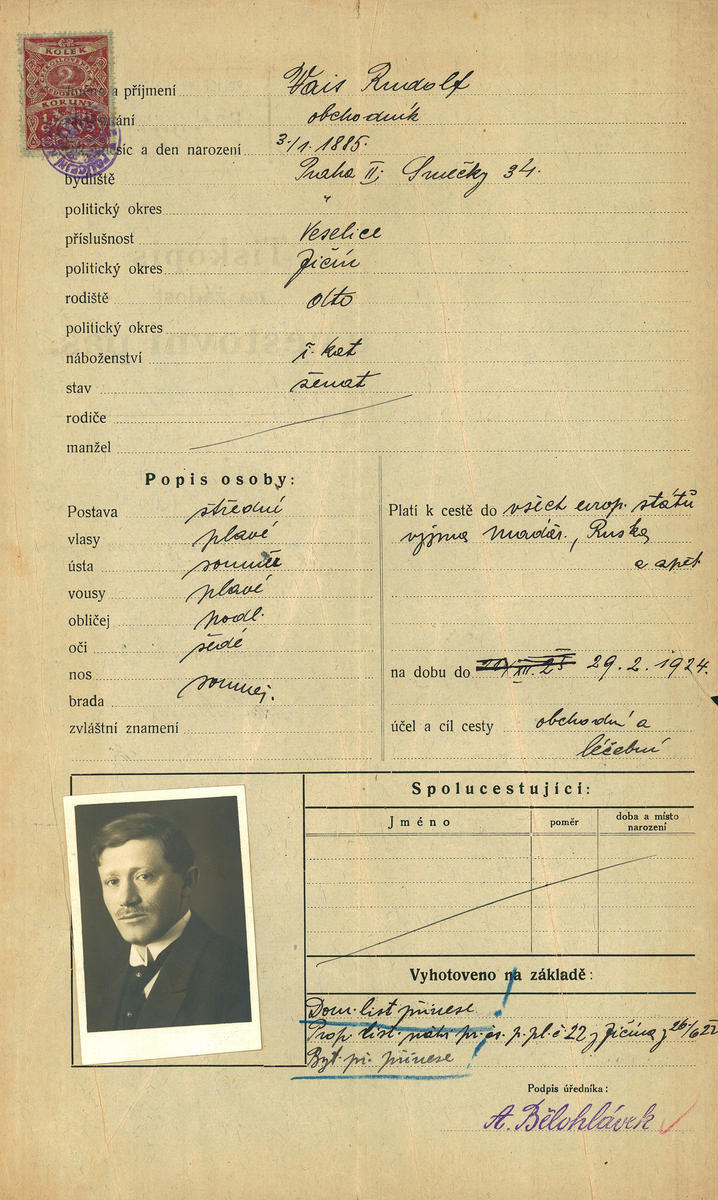 KOLEK
2
KORUNY
a příjmení Vais Rudolf
obchodník
a den narození 3/1. 1885.
bydliště Praha II. Smečky 34.
politický okres "
příslušnost Veselice
politický okres Jičín
rodiště dtto
politický okres
náboženství ř. kat
stav ženat
rodiče
manžel
Popis osoby:
Postava střední
vlasy plavé
ústa souměr
vousy plavé
obličej podl.
oči šedé
nos souměj.
brada
zvláštní znamení
Platí k cestě do všech evrop. států
vyjma Maďar., Ruska
a zpět
na dobu do 29. 2. 1924.
účel a cíl cesty obchodní a
léčební
Spolucestující:
Jméno poměr doba a místo narození
Vyhotoveno na základě:
Dom. list přinese
Prop. list. náhr. pr. čs. p. pl. č 22 z Jičína z 26/6 22
Byt. př. přinese
Podpis úředníka:
A. Bělohlávek